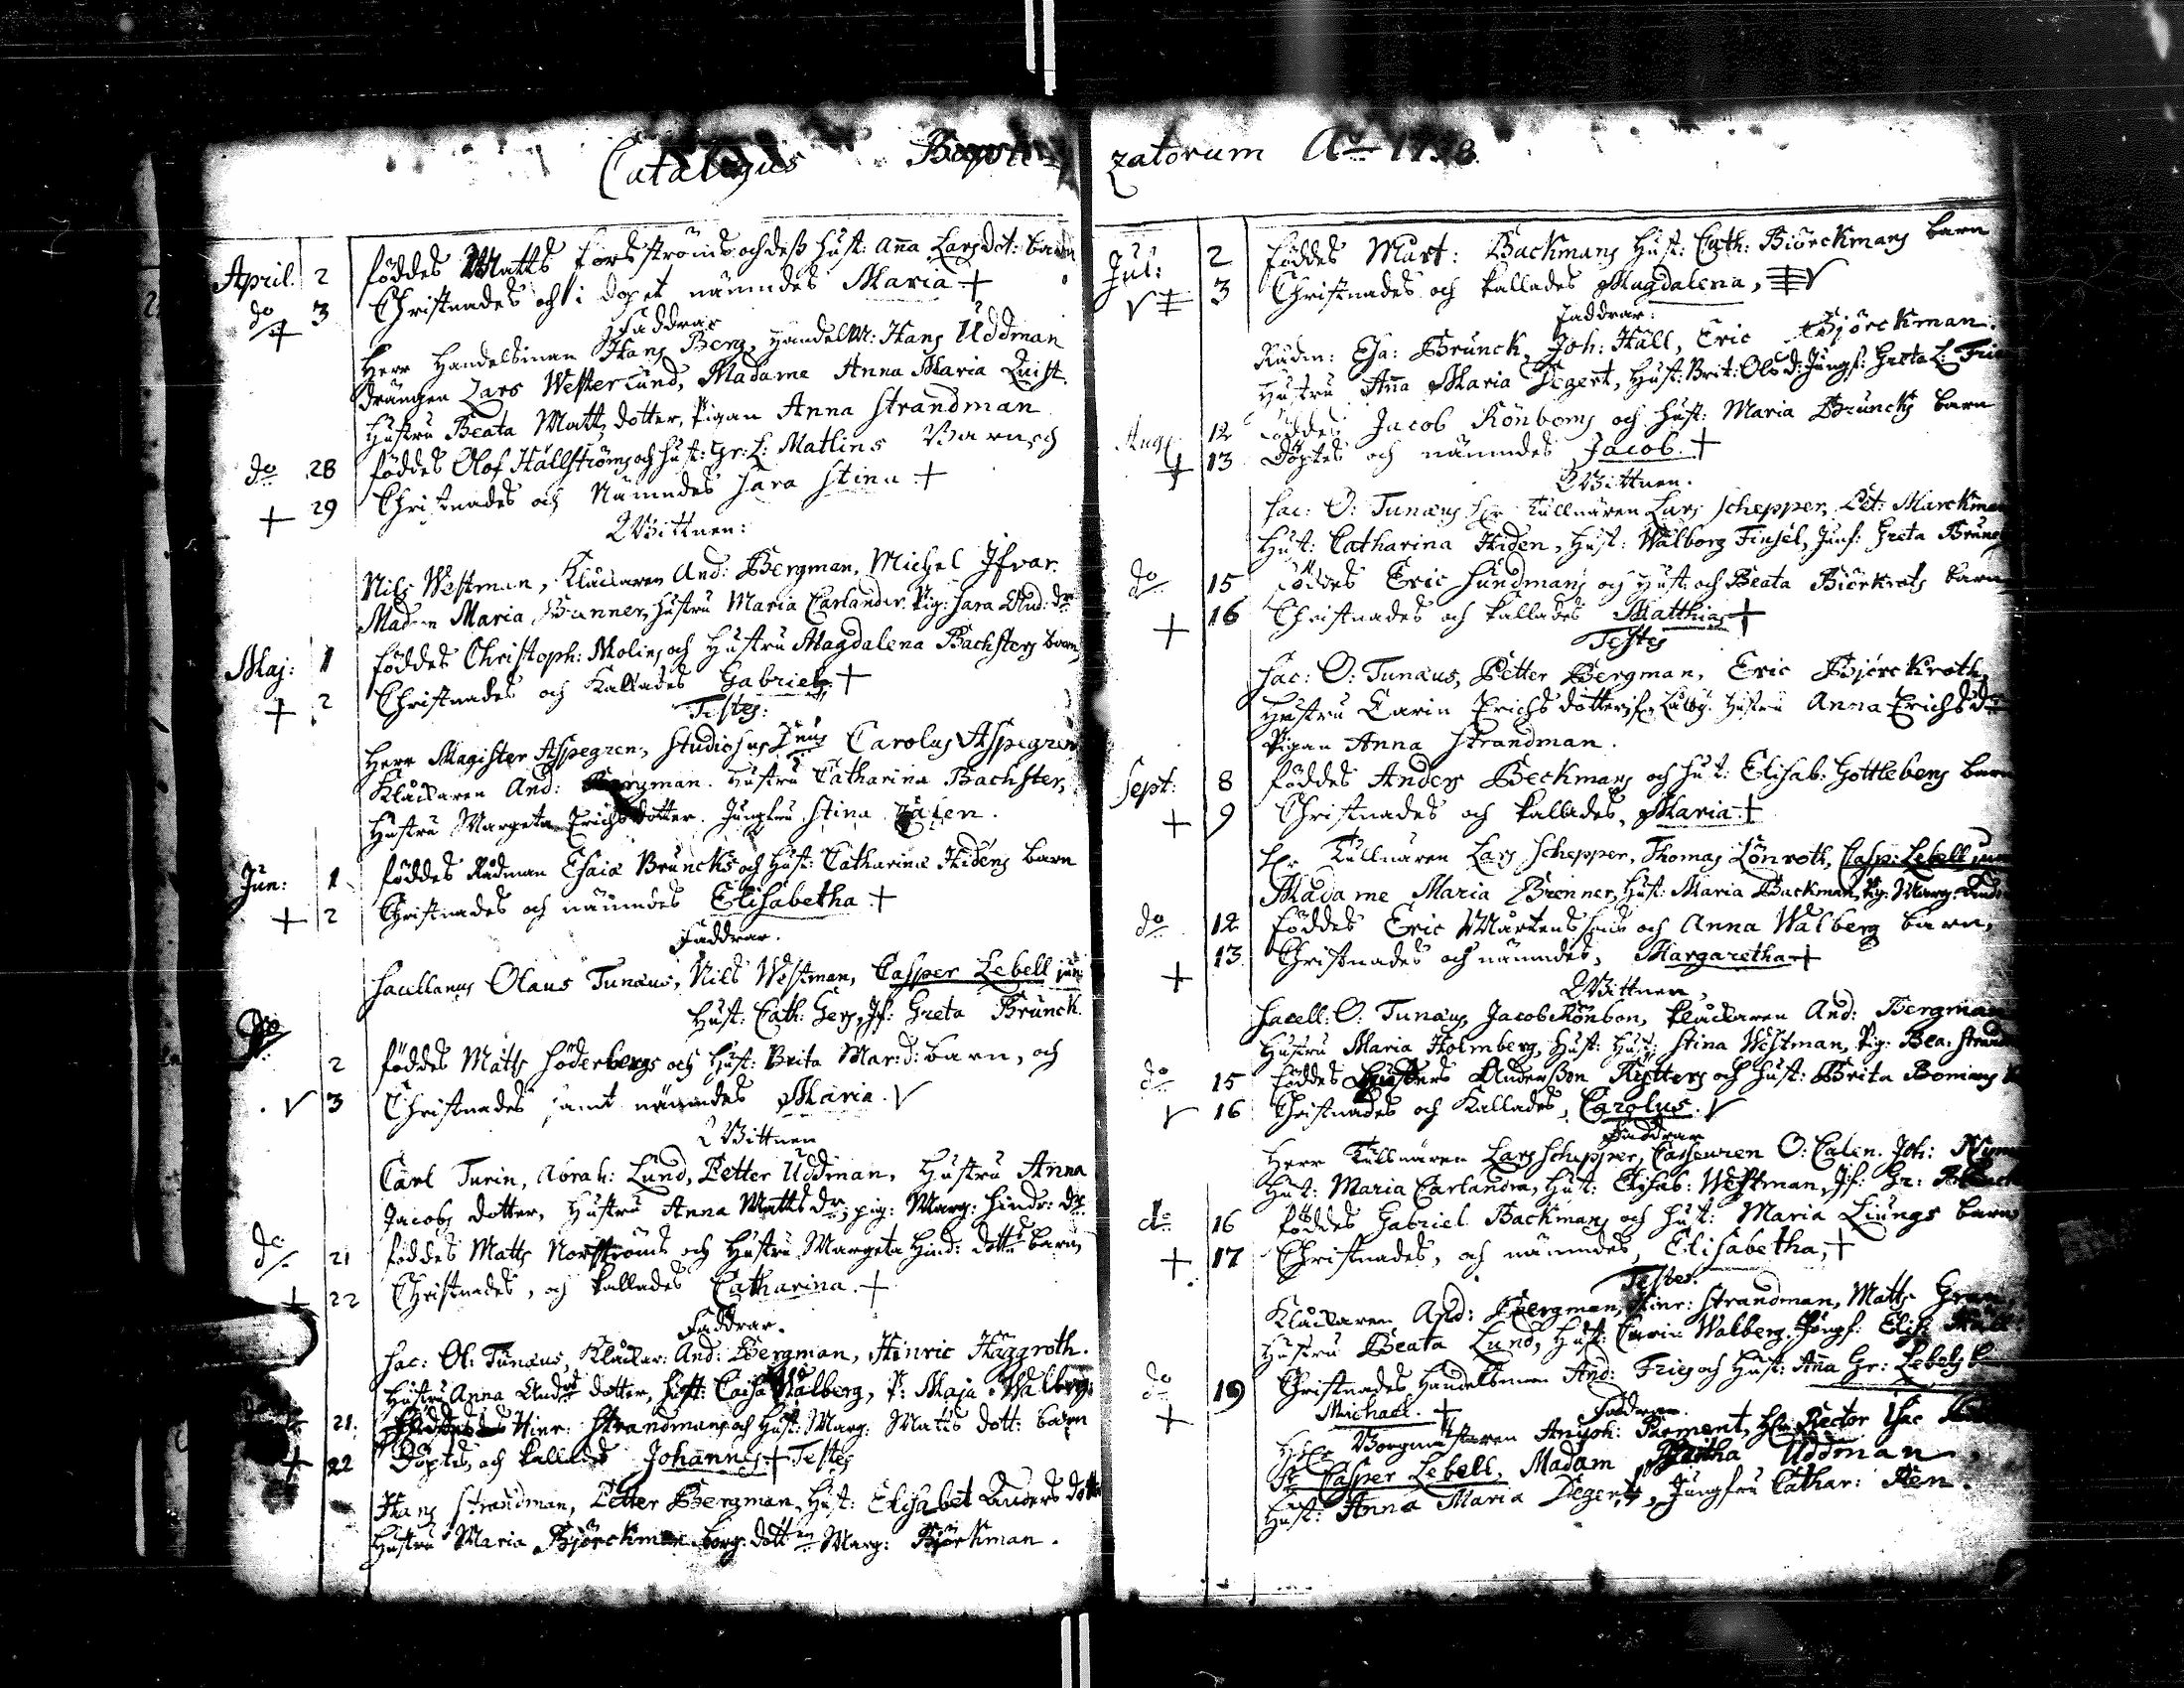 Catalogus Bapti-
zatorum Ao 1738.
April. 2 föddes Matts Forsströms och deß hust: Aña Larsdot: barn
do 3 Christnades och i dopet nämndes Maria +
+ Faddrar
Herr Handelsman Hans Berg, Handelm: Hans Uddman
drängen Lars Westerlund, Madame Anna Maria Quist.
Hustru Beata Matts dotter, Pigan Anna Strandman
do 28 föddes Olof Hällströms och hust: Gr: L: Matlins Barn och
+ 29 Christnades och Nämndes Sara Stina +
Wittnen:
Nils Westman, Klåckaren And: Bergman, Michel Ifvar.
Madam Maria Brenner, hustru Maria Carlander. Pig: Sara And: dr
Maj: 1 föddes Christoph: Molins och Hustru Magdalena Bachsters barn
+ 2 Christnades och Kallades Gabriel +
Testes:
Herr Magister Aspegren, Studiosus Carolus Aspegren
Klåckaren And: Bergman. Hustru Catharina Bachster,
Hustru Margeta Erichsdotter. Jungfru Stina Calen.
Jun: 1 föddes Rådman Esaiæ Bruncks och hust: Catharina Hidens barn
+ 2 Christnades och nämndes Elisabetha +
Faddrar.
Sacellanus Olaus Tunæus, Nils Westman, Casper Lebell jun
Hust: Cath: Gers, Jf: Greta Brunck.
do 2 föddes Matts Söderbergs och Hust: Brita Mar: d: barn, och
√ 3 Christnades samt nämndes Maria. √
Wittnen
Carl Turin, Abrah: Lund, Petter Uddman, Hustru Anna
Jacobs dotter, Hustru Anna Matts dr, pig: Marg: Hindr: dr.
do 21 föddes Matts Norströms och Hustru Margeta Hind: dotter barn
+ 22 Christnades, och kallades Catharina. +
Faddrar.
Sac: Ol: Tunæus, Klåckar: And: Bergman, Hinric Häggroth.
Hustru Anna And: dotter, hust: Caisa Walberg, P: Maja Walberg.
21. föddes Hinr: Strandmans och Hust: Marg: Matts dott: barn
+ 22 Döptes, och kallades Johannes + Testes
Hans Strandman, Petter Bergman, Hust: Elisabet Anders dotter
Hustru Maria Björckman borg: dottn Marg: Björkman.
Jul: 2 föddes Mårt: Backmans Hust: Cath: Biörckmans barn
√ ‡ 3 Christnades och kallades Magdalena, ‡ √
Faddrar:
Rådm: Esa: Brunck, Joh: Häll, Eric Björckman.
Hustru Aña Maria Degert, Hust: Brit: Olsd: Jungf: Greta L: Frie
Aug: 12 föddes Jacob Rönboms och Hust: Maria Bruncks barn
+ 13 Döptes och nämndes Jacob. +
Wittnen.
Sac: O: Tunæus, Hr Tullnären Lars Schepper, Pet: Marckman
Hust: Catharina Hiden, Hust: Walborg Finsel, Junf: Greta Brunck
do 15 föddes Eric Sundmans och Hust: och Beata Biörkrots barn
+ 16 Christnades och kallades Matthias +
Testes
Sac: O: Tunæus, Petter Bergman, Eric Björckroth,
Hustru Carin Erichs dotter, Hustru Anna Erichsdr
Pigan Anna Strandman.
Sept: 8 föddes Anders Beckmans och hust: Elisab: Gottlebens barn
+ 9 Christnades och kallades, Maria +
Hr Tullnären Lars Schepper, Thomas Lönroth, Casp: Lebell jun
Madame Maria Brenner, Hust: Maria Backman, Pig: Marg:
do 12 föddes Eric Mårtens sons och Anna Walberg barn,
+ 13 Christnades och nämndes, Margaretha +
Wittnen,
Sacell: O: Tunæus, Jacob Rönbon, klåckaren And: Bergman
Hustru Maria Holmberg, Hust: Hust: Stina Westman, Pig: Bea: Strand
do 15 föddes Anderßon Rytters och hust: Brita Bomans
√ 16 Christnades och Kallades, Carolus. √
Faddrar
Herr Tullnären Lars Schepper, Casseuren O: Calen. Joh:
Hust: Maria Carlandra, Hust: Elisab: Westman, Jf: Gr: Brunck
do 16 föddes Gabriel Backmans och hust: Maria Liungs barn
+ 17 Christnades, och nämndes, Elisabetha, +
Testes.
Klåckaren And: Bergman, Hinr: Strandman, Matts Gran
Hustru Beata Lund, Hust: Carin Walberg, Jungf: Elis:
do 19 Christnades Handelsman And: Fries och Hust: Aña Gr: Lebels
+ Michael. + Faddrar.
Borgmästaren Parment, Hr Rector Isac
Hr Casper Lebell, Madam Uddman
Hust: Anna Maria Degert, Jungfru Cathar: Ren.